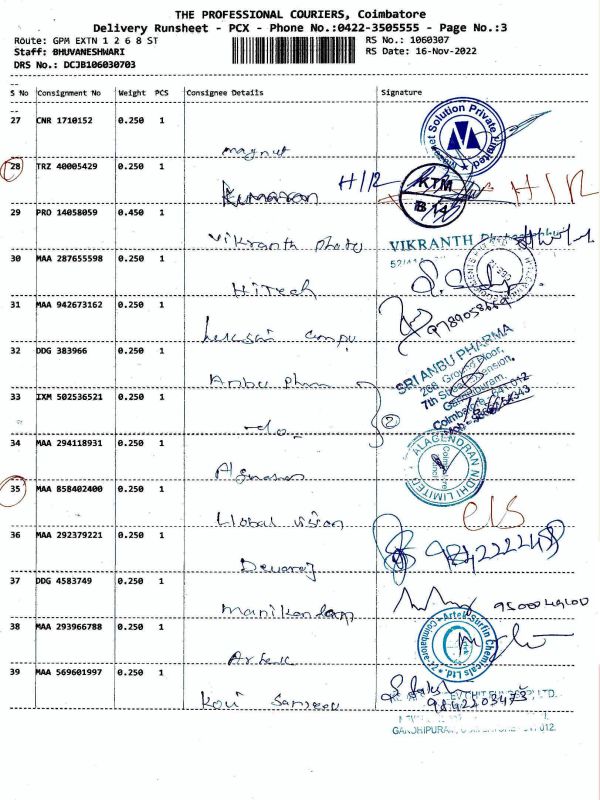 THE PROFESSIONAL COURIERS, Coimbatore
Delivery Runsheet - PCX - Phone No.:0422-3505555 - Page No.:3
Route: GPM EXTN 1 2 6 8 ST
RS No.: 1060307
Staff: BHUVANESHWARI
RS Date: 16-Nov-2022
DRS No.: DCJB106030703
S No Consignment No Weight PCS Consignee Details Signature
27 CNR 1710152 0.250 1
magnet
Solution Private Limited
28 TRZ 40005429 0.250 1
Kumaran H/R
KTM
H/R
29 PRO 14058059 0.450 1
Vikranth photo
VIKRANTH
30 MAA 287655598 0.250 1
HiTech
31 MAA 942673162 0.250 1
compu
32 DDG 383966 0.250 1
Anbu pharm
SRI ANBU PHARMA
268, Ground Floor,
7th Street Extension,
Gandhipuram,
Coimbatore - 641 012
33 IXM 502536521 0.250 1
-do-
2
34 MAA 294118931 0.250 1
ALAGENDRAN NIDHI LIMITED
35 MAA 858402400 0.250 1
Global vision
C/S
36 MAA 292379221 0.250 1
Devaraj
37 DDG 4583749 0.250 1
Manikandan
38 MAA 293966788 0.250 1
Artek
Artek Surfin Chemicals Ltd.
39 MAA 569601997 0.250 1
Sanjeev
9842203473